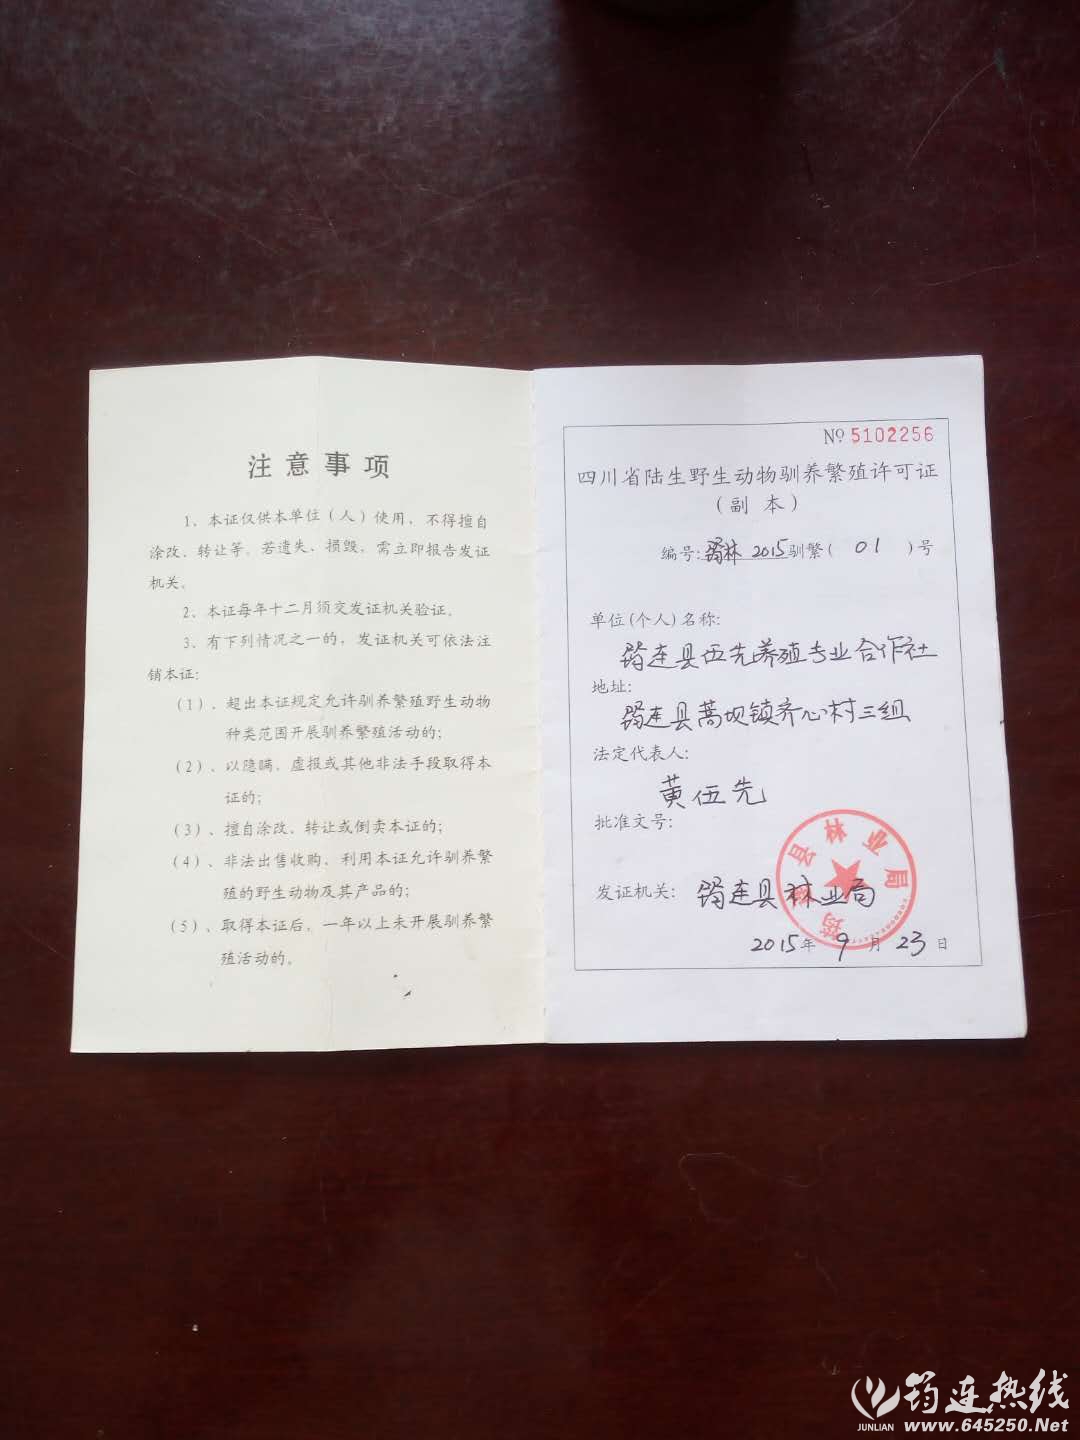 注意事项
1、本证仅供本单位（人）使用，不得擅自
涂改、转让等。若遗失、损毁，需立即报告发证
机关。
2、本证每年十二月须交发证机关验证。
3、有下列情况之一的，发证机关可依法注
销本证：
（1）、超出本证规定允许驯养繁殖野生动物
种类范围开展驯养繁殖活动的；
（2）、以隐瞒、虚报或其他非法手段取得本
证的；
（3）、擅自涂改、转让或倒卖本证的；
（4）、非法出售收购、利用本证允许驯养繁
殖的野生动物及其产品的；
（5）、取得本证后，一年以上未开展驯养繁
殖活动的。
№ 5102256
四川省陆生野生动物驯养繁殖许可证
（副 本）
编号：筠林 2015驯繁（ 01 ）号
单位（个人）名称：
筠连县伍先养殖专业合作社
地址：
筠连县蒿坝镇齐心村三组
法定代表人：
黄伍先
批准文号：
发证机关：筠连县林业局
2015年 9 月 23 日
筠连县林业局
筠连热线
JUNLIAN www.645250.Net